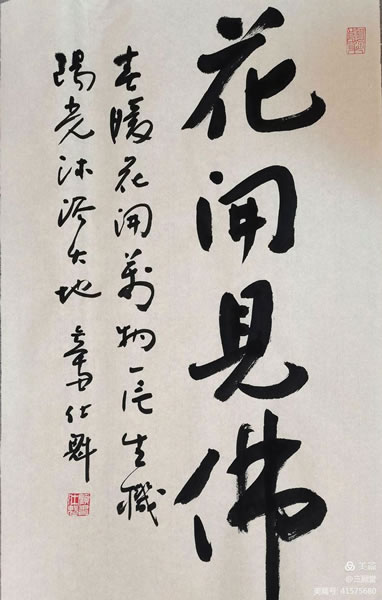 花開見佛
春暖花開萬物一片生機
陽光沐浴大地
仕魁
美篇
美篇号: 41575680